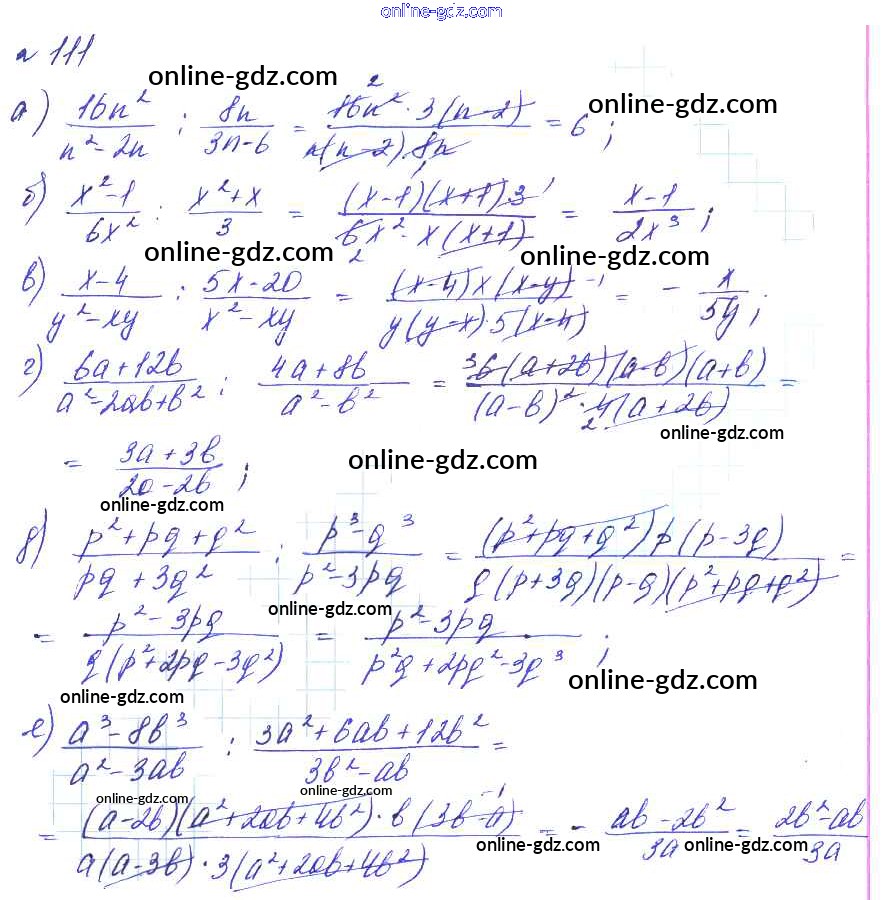 online-gdz.com
№ 111
online-gdz.com
а) 16n²/(n²-2n) : 8n/(3n-6) = 16n²·3(n-2)/(n(n-2)·8n) = 6;
online-gdz.com
б) (x²-1)/6x² : (x²+x)/3 = (x-1)(x+1)·3/(6x²·x(x+1)) = (x-1)/2x³;
online-gdz.com online-gdz.com
в) (x-4)/(y²-xy) : (5x-20)/(x²-xy) = (x-4)x(x-y)/(y(y-x)·5(x-4)) = - x/5y;
г) (6a+12b)/(a²-2ab+b²) : (4a+8b)/(a²-b²) = 6(a+2b)(a-b)(a+b)/((a-b)²·4(a+2b)) =
online-gdz.com
= (3a+3b)/(2a-2b);
online-gdz.com
online-gdz.com
д) (p²+pq+q²)/(pq+3q²) : (p³-q³)/(p²-3pq) = (p²+pq+q²)p(p-3q)/(q(p+3q)(p-q)(p²+pq+q²)) =
online-gdz.com
= (p²-3pq)/(q(p²+2pq-3q²)) = (p²-3pq)/(p²q+2pq²-3q³);
online-gdz.com
online-gdz.com
е) (a³-8b³)/(a²-3ab) : (3a²+6ab+12b²)/(3b²-ab) =
online-gdz.com online-gdz.com
= (a-2b)(a²+2ab+4b²)·b(3b-a)/(a(a-3b)·3(a²+2ab+4b²)) = - (ab-2b²)/3a = (2b²-ab)/3a
online-gdz.com online-gdz.com